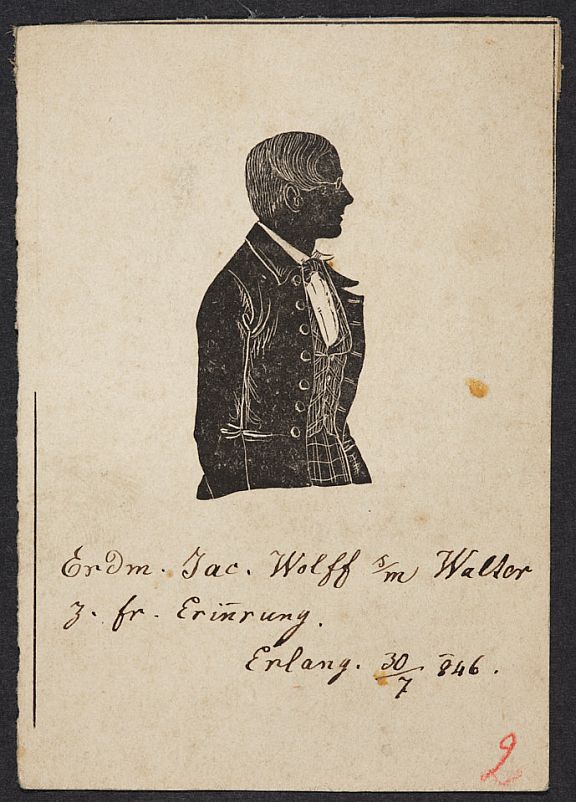 Erdm. Jac. Wolff s/m Walter
z. fr. Erin̄rung.
Erlang. 30/7 846.
2